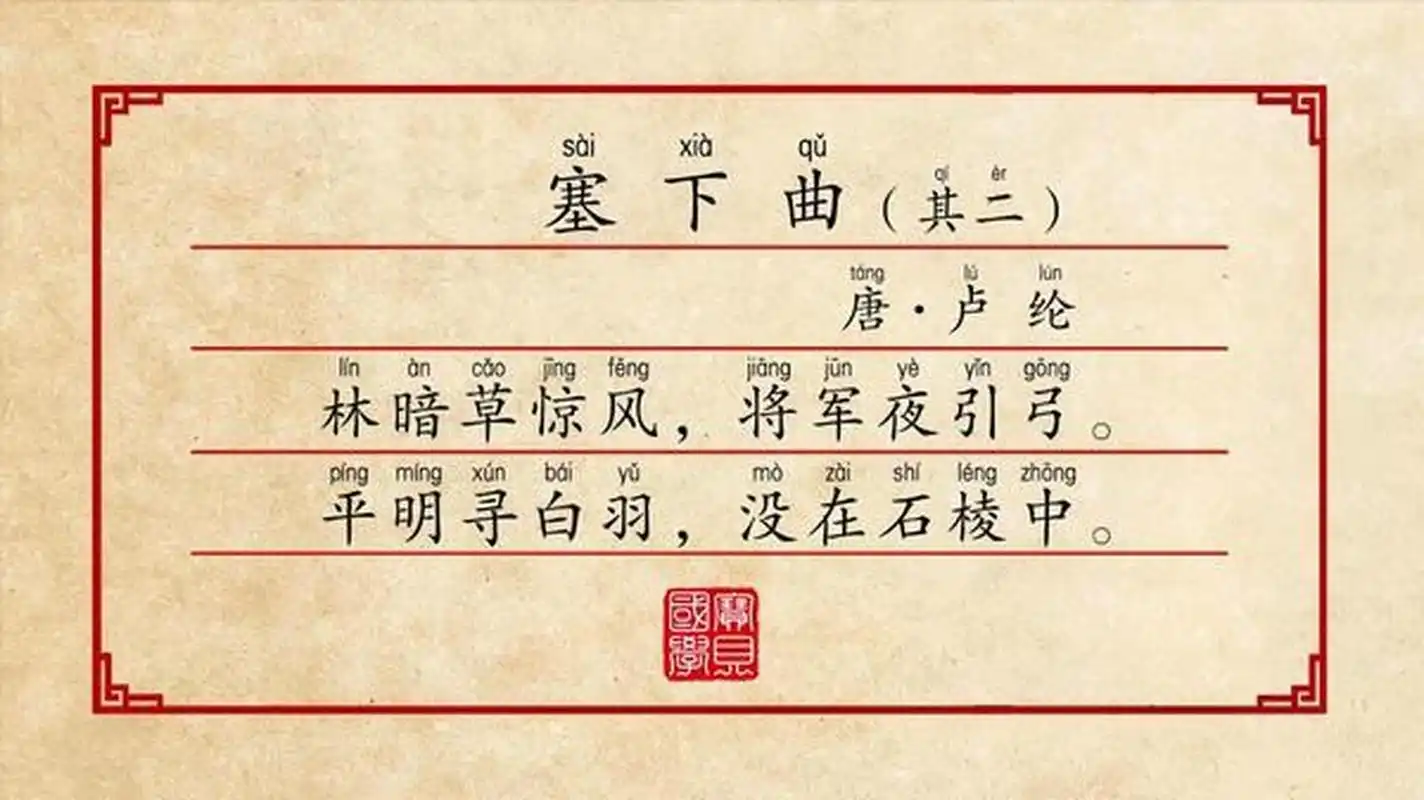 sài xià qǔ qí èr
塞下曲（其二）
táng lú lún
唐·卢纶
lín àn cǎo jīng fēng jiāng jūn yè yǐn gōng
林暗草惊风，将军夜引弓。
píng míng xún bái yǔ mò zài shí léng zhōng
平明寻白羽，没在石棱中。
寶貝
國學